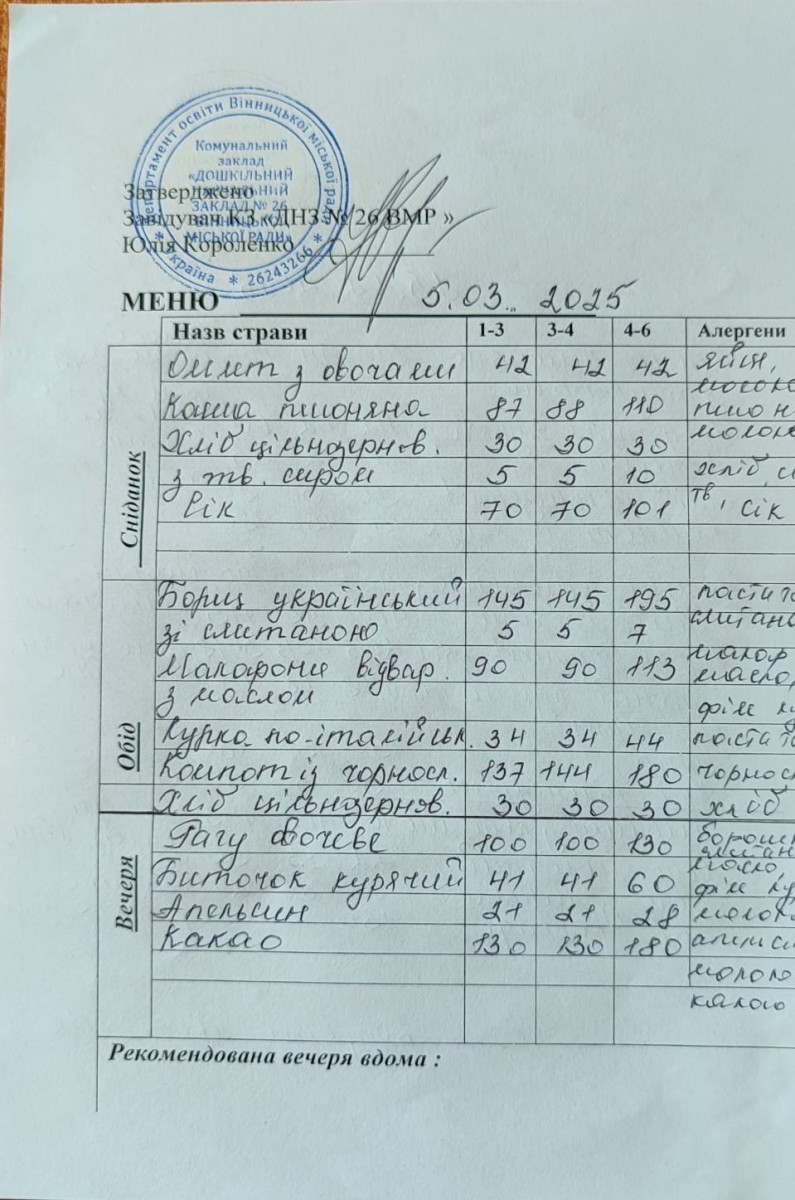 Департамент освіти Вінницької міської ради
* Україна * 26243266 *
Комунальний
заклад
«ДОШКІЛЬНИЙ
НАВЧАЛЬНИЙ
ЗАКЛАД № 26
ВІННИЦЬКОЇ
МІСЬКОЇ РАДИ»
Затверджено
Завідувач КЗ «ДНЗ № 26 ВМР »
Юлія Короленко
МЕНЮ 5.03. 2025
Назв страви 1-3 3-4 4-6 Алергени
Сніданок
Омлет з овочами 42 42 42 яйця,
молоко
Каша пшоняна 87 88 110 пшон
молоко
Хліб цільнозернов. 30 30 30
з тв. сиром 5 5 10 хліб, с
Сік 70 70 101 тв, сік
Обід
Борщ український 145 145 195 паста то
зі сметаною 5 5 7 сметана
Макарони відвар. 90 90 113 макар
масло,
з маслом філе ку
Курка по-італійськ. 34 34 44 паста то
Компот із чорносл. 137 144 180 чорносл
Хліб цільнозернов. 30 30 30 хліб
Вечеря
Рагу овочеве 100 100 130 борошн
сметан
масло,
Биточок курячий 41 41 60 філе ку
Апельсин 21 21 28 молоко
Какао 130 130 180 апельси
молоко
какао
Рекомендована вечеря вдома :